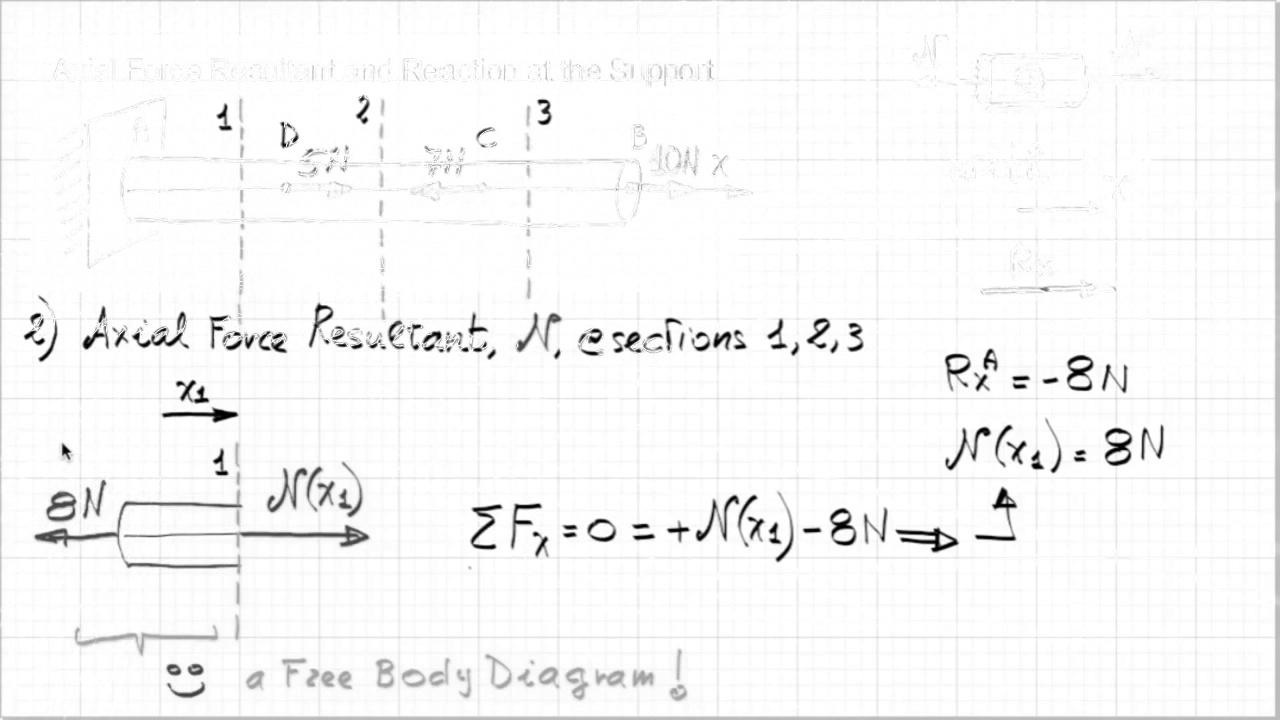 Axial Force Resultant and Reaction at the Support
N N
1 2 3
A D C B
5N 7N 10N x
x
Rx
2) Axial Force Resultant, N, @ sections 1, 2, 3
x₁
Rₓᴬ = -8N
N(x₁) = 8N
1
8N N(x₁)
ΣFₓ = 0 = +N(x₁) - 8N ⇒
a Free Body Diagram!